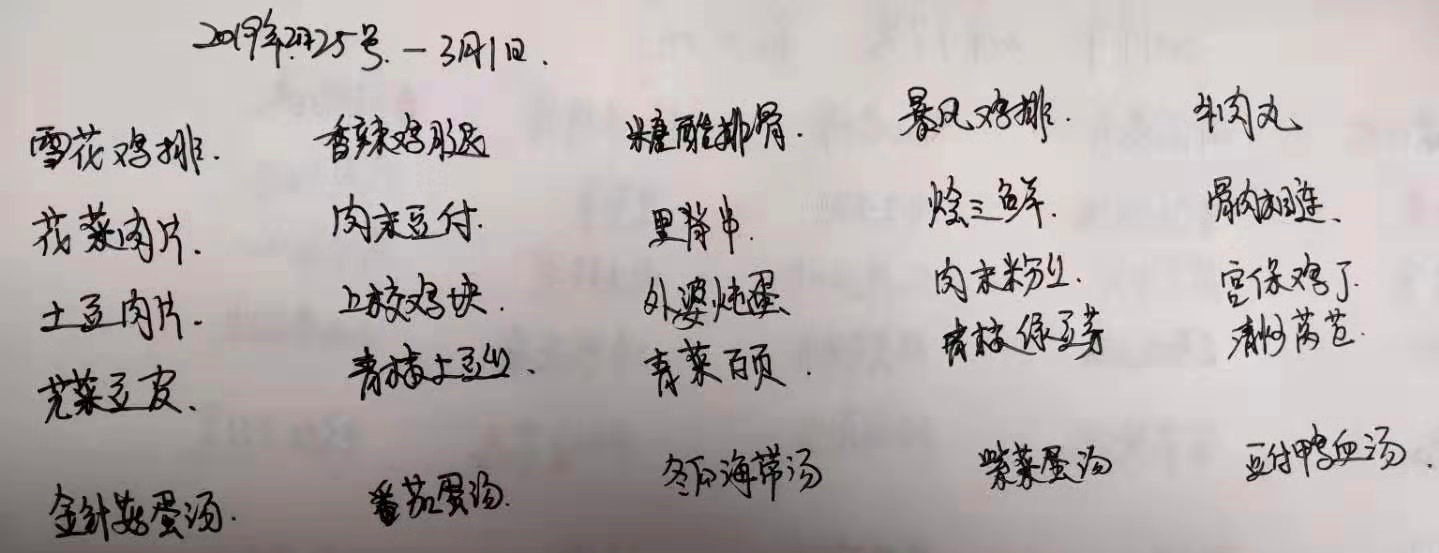 2019年2月25号.－3月1日.
雪花鸡排. 香辣鸡腿 糖醋排骨. 暴风鸡排. 牛肉丸
花菜肉片. 肉末豆付. 里脊串. 烩三鲜. 骨肉相连.
土豆肉片. 上校鸡块. 外婆炖蛋 肉末粉丝. 宫保鸡丁
芹菜豆皮. 青椒土豆丝. 青菜百页. 青椒绿豆芽 清炒莴苣.
金针菇蛋汤. 番茄蛋汤. 冬瓜海带汤 紫菜蛋汤 豆付鸭血汤.